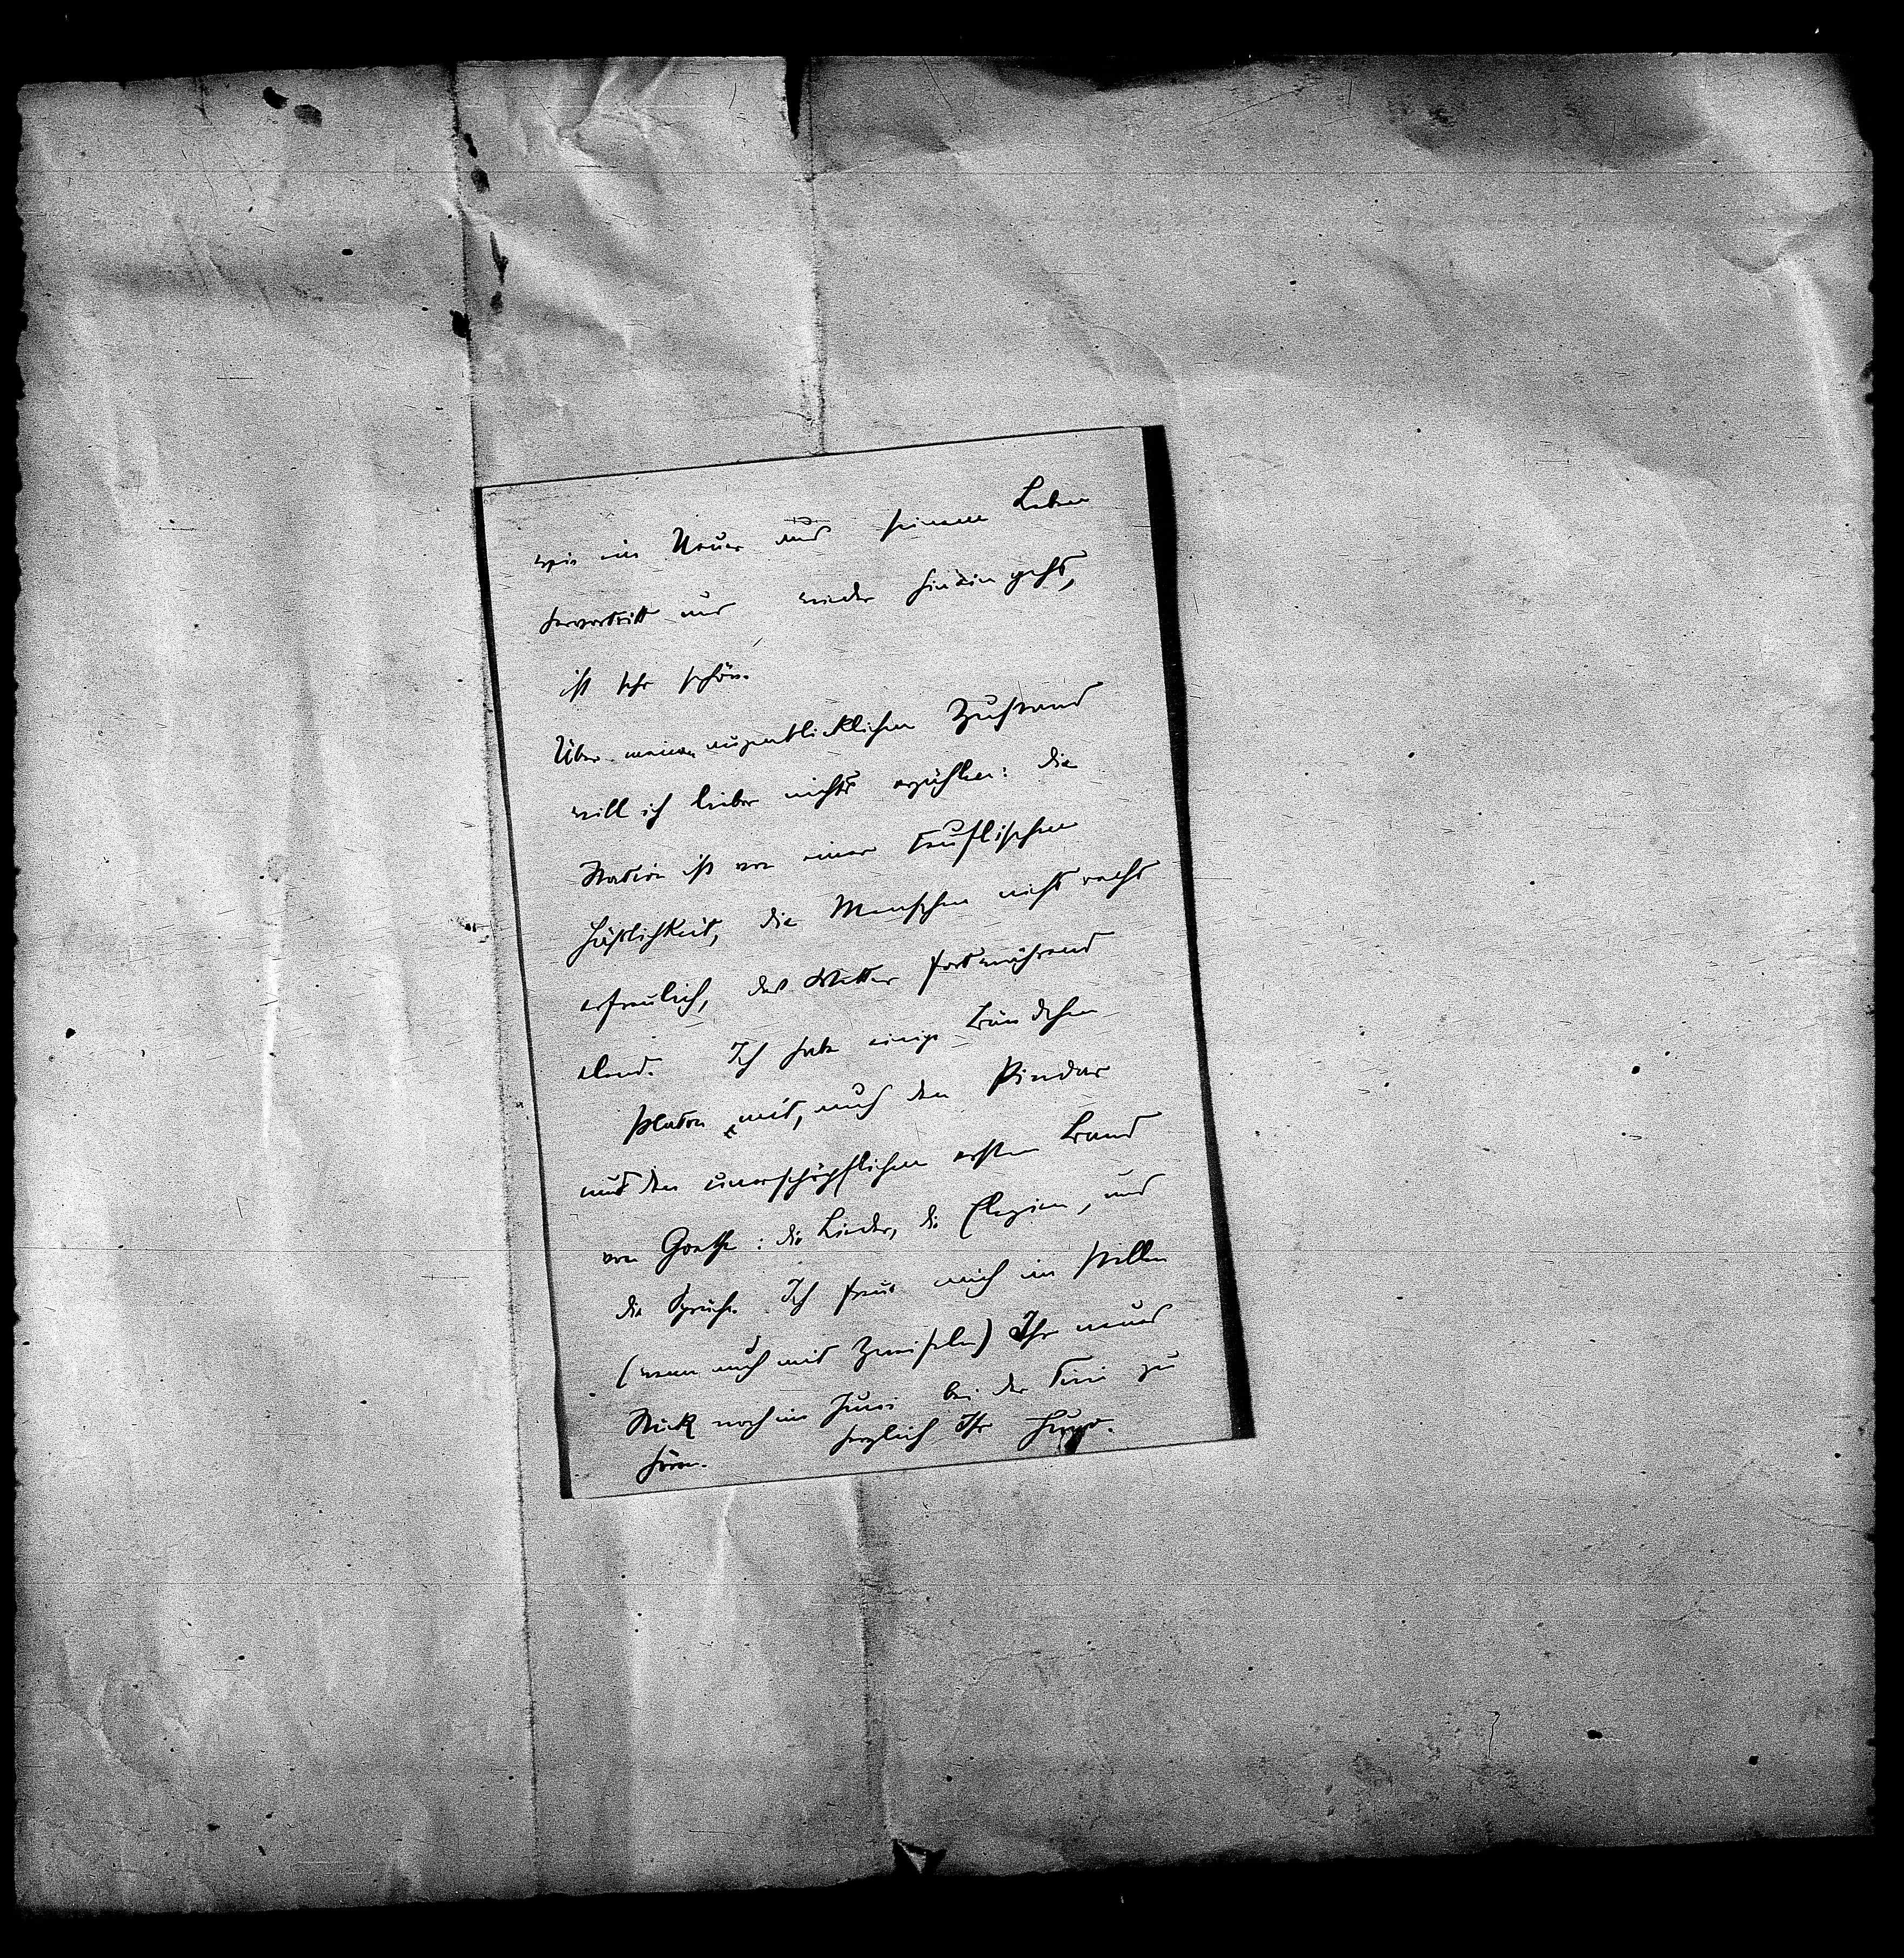 wie ein Neuer aus seinem Leben
hervortritt und wieder hineingeht,
ist sehr schön.
Über meinen augenblicklichen Zustand
will ich lieber nichts erzählen: die
Station ist von einer teuflischen
Häßlichkeit, die Menschen nicht recht
erfreulich, das Wetter fortwährend
elend. Ich habe einige Bändchen
Platon mit, auch den Pindar
und den unerschöpflichen ersten Band
von Goethe: die Lieder, die Elegien, und
die Sprüche. Ich freue mich im stillen
(wenn auch mit Zweifeln) Ihr neues
Stück noch im Juni bei der Fini zu
hören. herzlich Ihr Hugo.